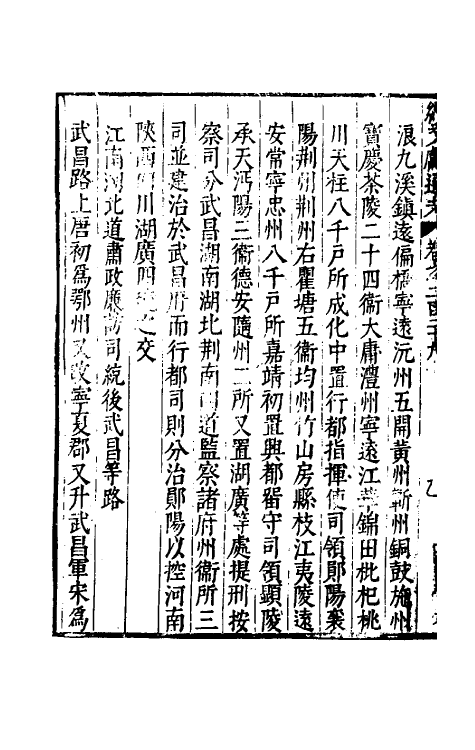 續文獻通考 卷之二百二十九
浪九溪鎮遠偏橋寧遠沅州五開黃州蘄州銅鼓施州
寶慶茶陵二十四衞大庸澧州寧遠江華錦田枇杷桃
川天柱八千戶所成化中置行都指揮使司領鄖陽襄
陽荆州荆州右瞿塘五衞均州竹山房縣枝江夷陵遠
安常寧忠州八千戶所嘉靖初置興都畱守司領顯陵
承天沔陽三衞德安隨州二所又置湖廣等處提刑按
察司分武昌湖南湖北荆南四道監察諸府州衞所三
司並建治於武昌府而行都司則分治鄖陽以控河南
陝西四川湖廣四省之交
江南湖北道肅政廉訪司統後武昌等路
武昌路上唐初爲鄂州又改寧夏郡又升武昌軍宋爲